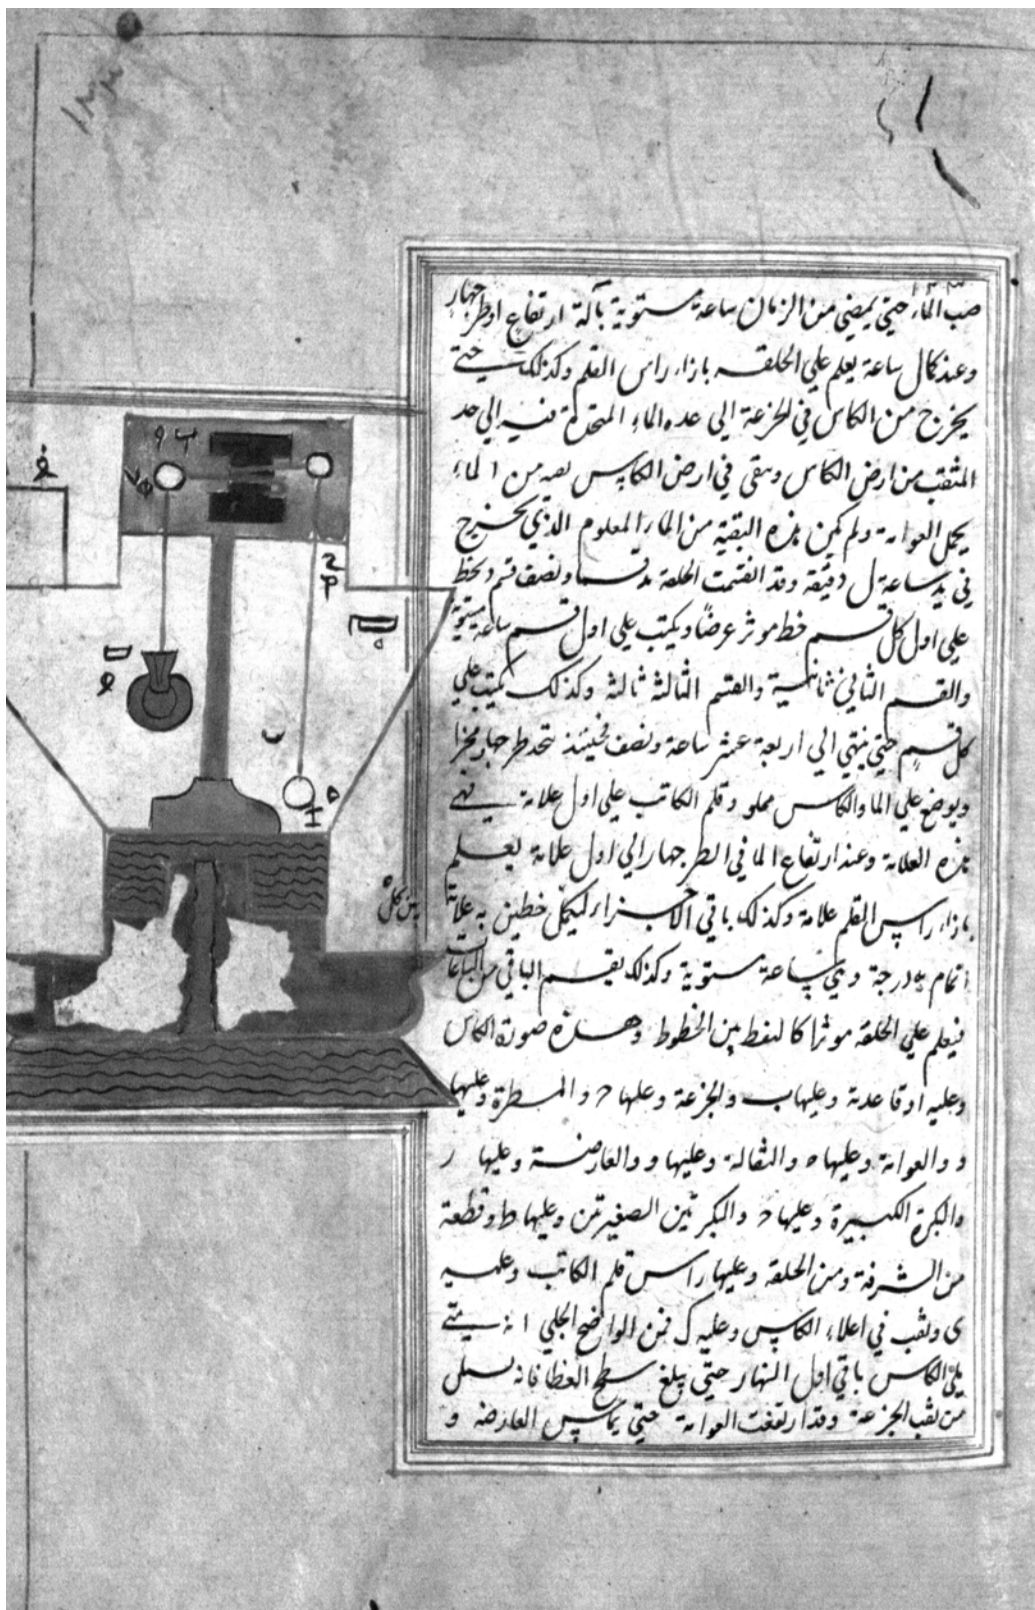 صب الماء حتي يمضي من الزمان ساعة مستوية بآلة ارتفاع او طرجهار
وعند كمال ساعة يعلم علي الحلقه بازاء راس القلم وكذلك حتي
يخرج من الكاس في الجزعة الي عده الماء المتحدرة فيه الي حد
المثقب من ارض الكاس وبقي في ارض الكاس من الماء
يحمل العوامة ولم يكن هذه البقية من الماء المعلوم الذي يخرج
في ساعة ل دقيقة وقد انقسمت الحلقة يد قسما ونصف قسم يخط
علي اول كل قسم خط موثر عرضا ويكتب علي اول قسم ساعة مستوية
والقسم الثاني ثانية والقسم الثالثة ثالثة وكذلك يكتب علي
كل قسم حتي ينتهي الي اربعة عشر ساعة ونصف فحينئذ يتخد طرجهار مجزا
ويوضع علي الماء والكاس مملو وقلم الكاتب علي اول علامة فهي
هذه العلامة وعند ارتفاع الما في الطرجهار الي اول علامة يعلم
بازاء راس القلم علامة وكذلك باقي الاجزاء ليكمل خطين يه علامة
اتمام يه درجة وهي ساعة مستوية وكذلك يقسم الباقي من الساعات
فيعلم علي الحلقة موثرا كالنقط بين الخطوط وهذه صورة الكاس
وعليه ا وقاعدته وعليها ب والجزعة وعليها ح والمسطرة وعليها
د والعوامة وعليها ه والثقالة وعليها و والعارضة وعليها ز
والبكرة الكبيرة وعليها ح والبكرتين الصغيرتين وعليها ط وقطعة
من الشرفة ومن الحلقه وعليها راس قلم الكاتب وعليه
ى وثقب في اعلاء الكاس وعليه ك فمن الواضح الجلي انه متي
ملئ الكاس باقي اول النهار حتي يبلغ سطح الغطا فانه يسيل
من ثقب الجزعة وقد ارتفعت العوامة حتي يماس العارضه و